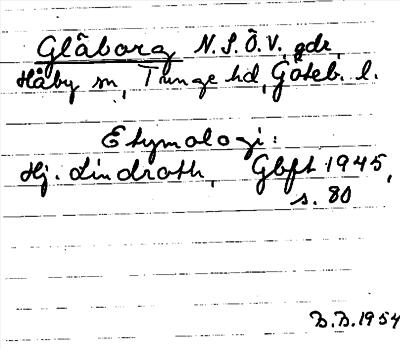 Glåborg N.S.Ö.V. gdr,
Håby sn, Tunge hd, Göteb. l.
Etymologi:
Hj. Lindroth, Gbft 1945,
s. 80
B.B. 1954